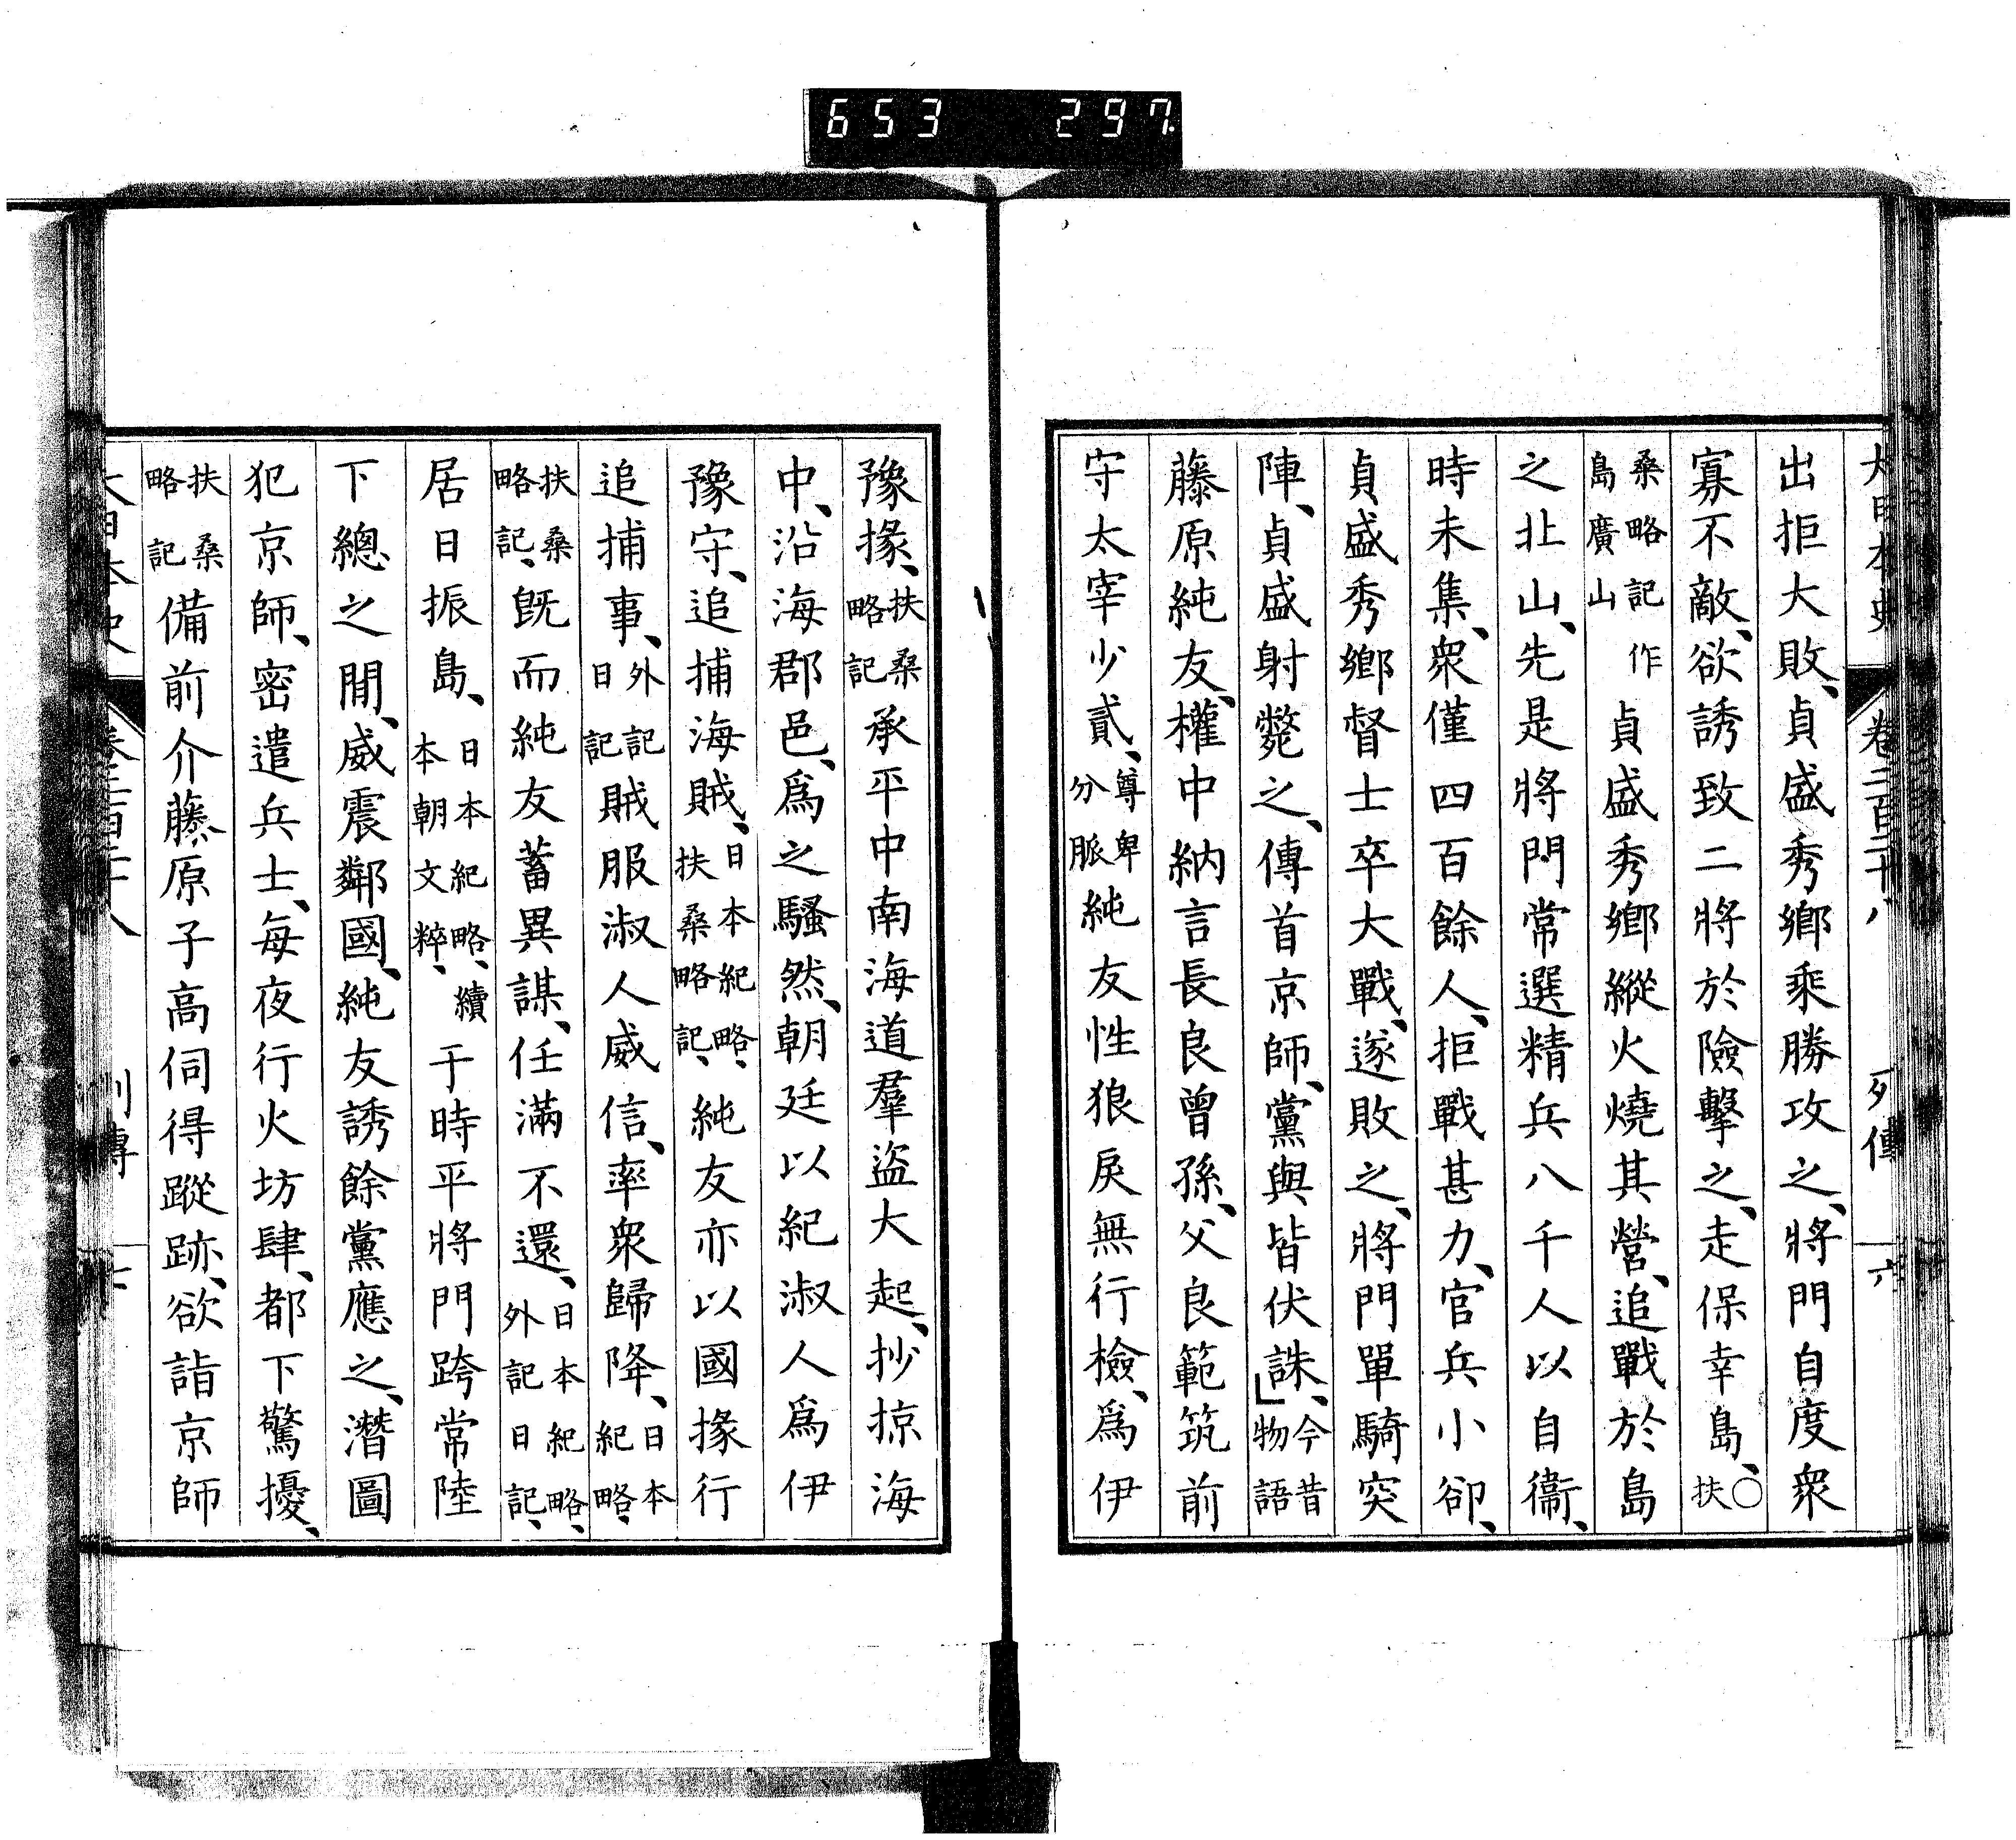 653 297
大日本史 卷二百二十八 列傳 六
出拒大敗、貞盛秀鄉乘勝攻之、將門自度衆
寡不敵、欲誘致二將於險擊之、走保幸島、○扶
桑略記作島廣山貞盛秀鄉縱火燒其營、追戰於島
之北山、先是將門常選精兵八千人以自衞、
時未集、衆僅四百餘人、拒戰甚力、官兵小卻、
貞盛秀鄉督士卒大戰、遂敗之、將門單騎突
陣、貞盛射斃之、傳首京師、黨與皆伏誅、今昔物語
藤原純友、權中納言長良曾孫、父良範筑前
守太宰少貳、尊卑分脈純友性狼戾無行檢、爲伊
豫掾、扶桑略記承平中南海道羣盜大起、抄掠海
中、沿海郡邑、爲之騷然、朝廷以紀淑人爲伊
豫守、追捕海賊、日本紀略、扶桑略記、純友亦以國掾行
追捕事、外記日記賊服淑人威信、率衆歸降、日本紀略、
扶桑略記、旣而純友蓄異謀、任滿不還、日本紀略、外記日記、
居日振島、日本紀略、續本朝文粹、于時平將門跨常陸
下總之閒、威震鄰國、純友誘餘黨應之、潛圖
犯京師、密遣兵士、每夜行火坊肆、都下驚擾、
扶桑略記備前介藤原子高伺得蹤跡、欲詣京師
大日本史 卷二百二十八 列傳 七